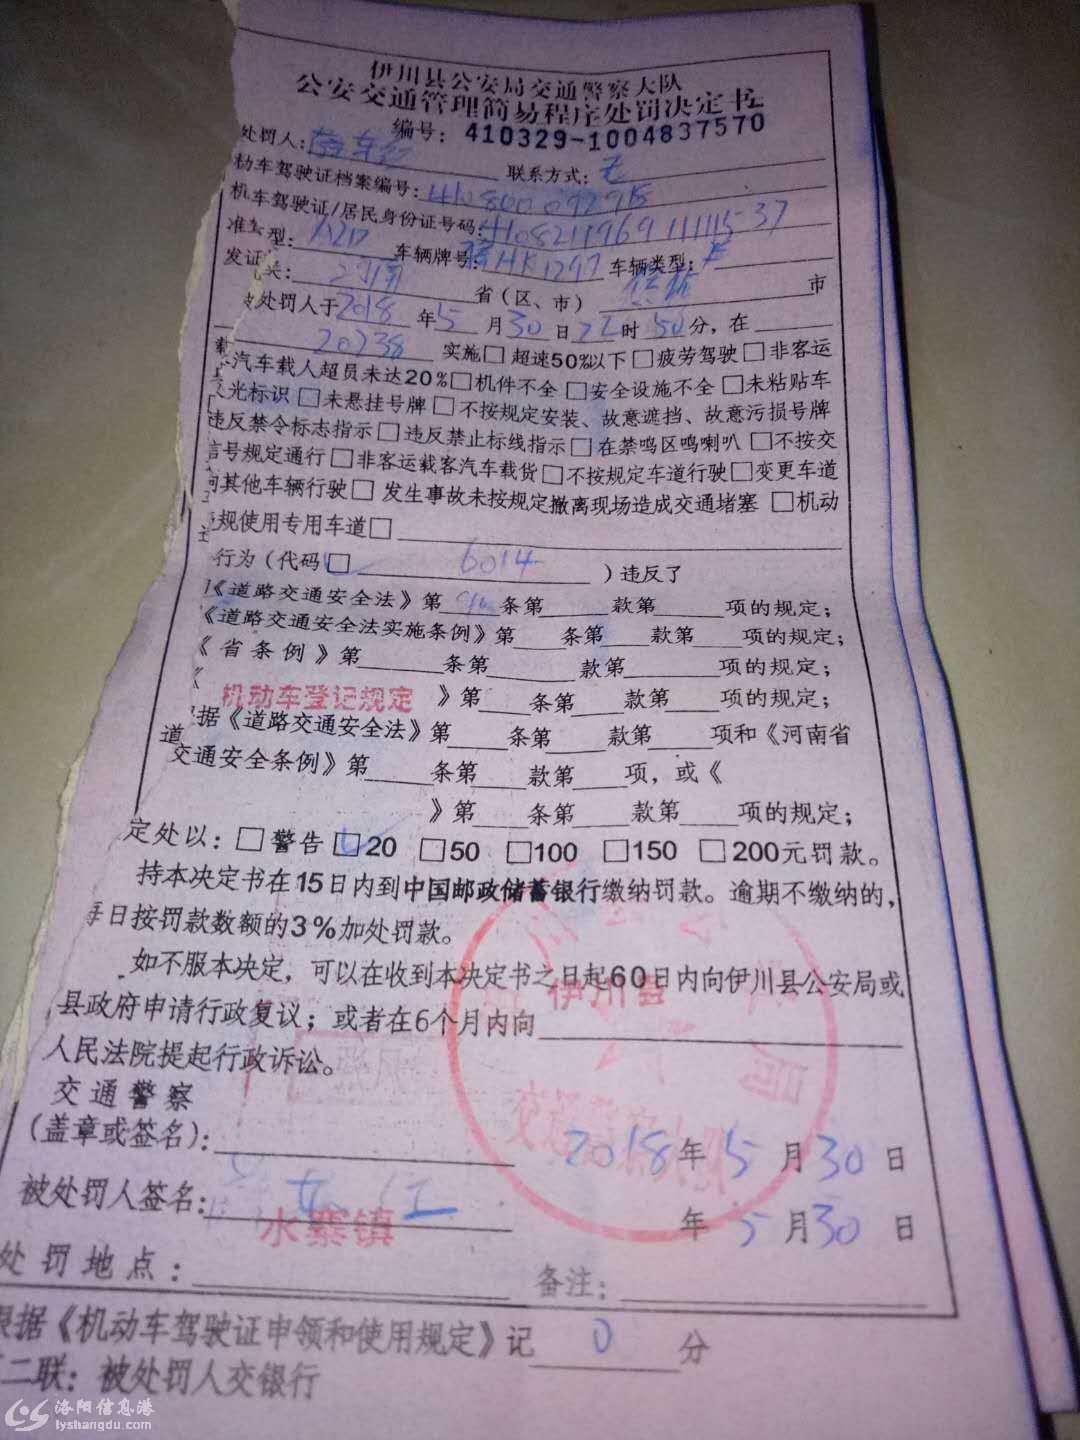 伊川县公安局交通警察大队
公安交通管理简易程序处罚决定书
编号：410329-1004837570
处罚人： 联系方式：无
动车驾驶证档案编号：
机车驾驶证/居民身份证号码：
准 型：A2D 车辆牌号：HK1297 车辆类型：
发证 关：河南 省（区、市） 市
被处罚人于2018年5月30日22时50分，在
20238 实施□超速50%以下□疲劳驾驶□非客运
载汽车载人超员未达20%□机件不全□安全设施不全□未粘贴车
光标识□未悬挂号牌□不按规定安装、故意遮挡、故意污损号牌
违反禁令标志指示□违反禁止标线指示□在禁鸣区鸣喇叭□不按交
信号规定通行□非客运载客汽车载货□不按规定车道行驶□变更车道
向其他车辆行驶□ 发生事故未按规定撤离现场造成交通堵塞 □机动
违规使用专用车道□
行为（代码□ 6014 ）违反了
《道路交通安全法》第 条第 款第 项的规定；
《道路交通安全法实施条例》第 条第 款第 项的规定；
《省条例》第 条第 款第 项的规定；
《 机动车登记规定 》第 条第 款第 项的规定；
据《道路交通安全法》第 条第 款第 项和《河南省
道
交通安全条例》第 条第 款第 项，或《
》第 条第 款第 项的规定；
定处以：□警告□20 □50 □100 □150 □200元罚款。
持本决定书在15日内到中国邮政储蓄银行缴纳罚款。逾期不缴纳的，
每日按罚款数额的3%加处罚款。
如不服本决定，可以在收到本决定书之日起60日内向伊川县公安局或
伊川县
县政府申请行政复议；或者在6个月内向
人民法院提起行政诉讼。
交通警察
（盖章或签名）： 2018年5月30日
被处罚人签名： 年5月30日
水寨镇
处罚地点： 备注：
根据《机动车驾驶证申领和使用规定》记 0 分
二联：被处罚人交银行
洛阳信息港
lyshangdu.com